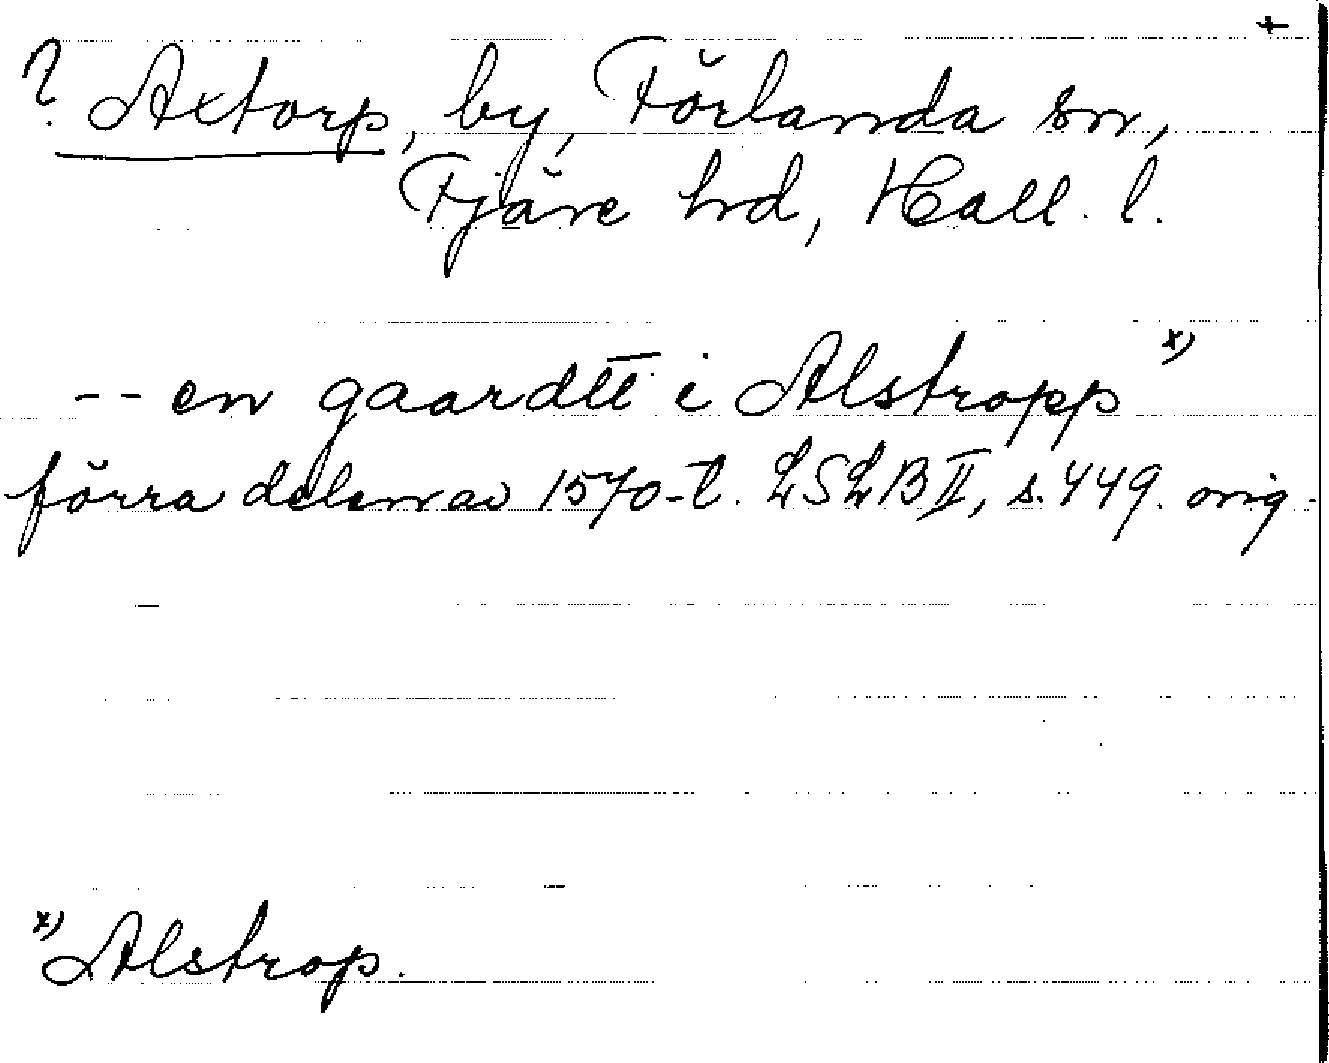 +
? Axtorp, by, Förlanda sn,
Fjäre hrd, Hall. l.
-- en gaardtt i Alstropp x)
förra delen av 1570-t. LSLB II, s. 449. orig.
x) Alstrop.